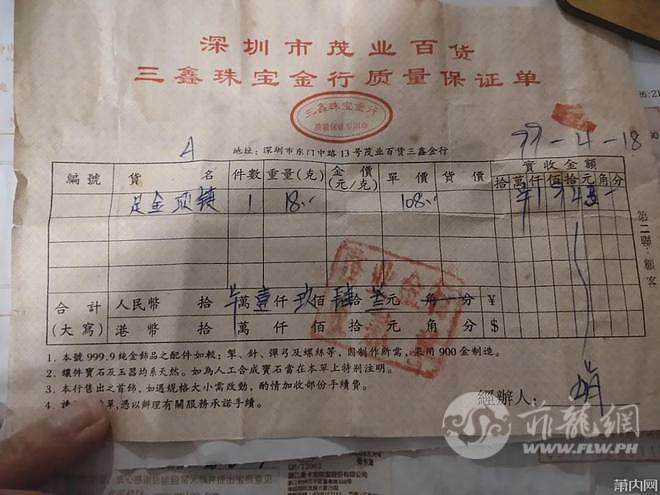 深圳市茂业百货
三鑫珠宝金行质量保证单
三鑫珠宝金行
99-4-18
地址：深圳市东门中路13号茂业百货三鑫金行
編號 貨名 件數 重量(克) 金價 元/克 單價 貨價 實收金額
拾 萬 仟 佰 拾 元 角 分
足金项链 1 18.. 108..
合計 人民幣 拾 萬 壹 仟 玖 佰 拾 元 角 分 ¥
(大寫) 港幣 拾 萬 仟 佰 拾 元 角 分 $
第二聯：顧客
1．本號999.9純金飾品之配件如輥：掣、針、彈弓及螺絲等，因制作所需，采用900金制造。
2．鑲件寶石及玉器均系天然。如為人工合成寶石當在本單上特別注明。
3．本行售出之首飾，如遇規格大小需改動，酌情加收部份手續費。
4．單，憑以辦理有關服務承諾手續。
經辦人：
菲龍網
WWW.FLW.PH
莆内网